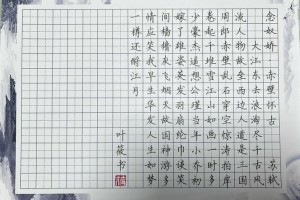 念奴娇·赤壁怀古 苏轼
大江东去浪淘尽千古风
流人物故垒西边人道是三国
周郎赤壁乱石穿空惊涛拍岸
卷起千堆雪江山如画一时多
少豪杰遥想公瑾当年小乔初
嫁了雄姿英发羽扇纶巾谈笑
间樯橹灰飞烟灭故国神游多
情应笑我早生华发人生如梦
一樽还酹江月
叶筱书